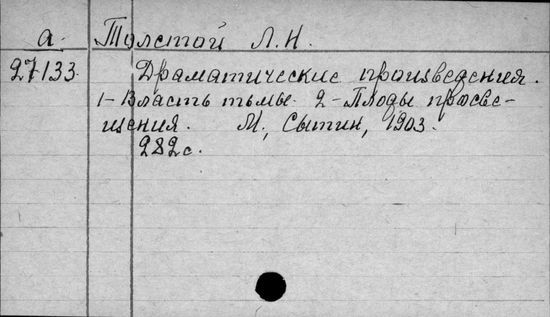 а. Толстой Л.Н.
27133. Драматические произведения.
1-Власть тьмы. 2-Плоды просве-
щения. М., Сытин, 1903.
282с.